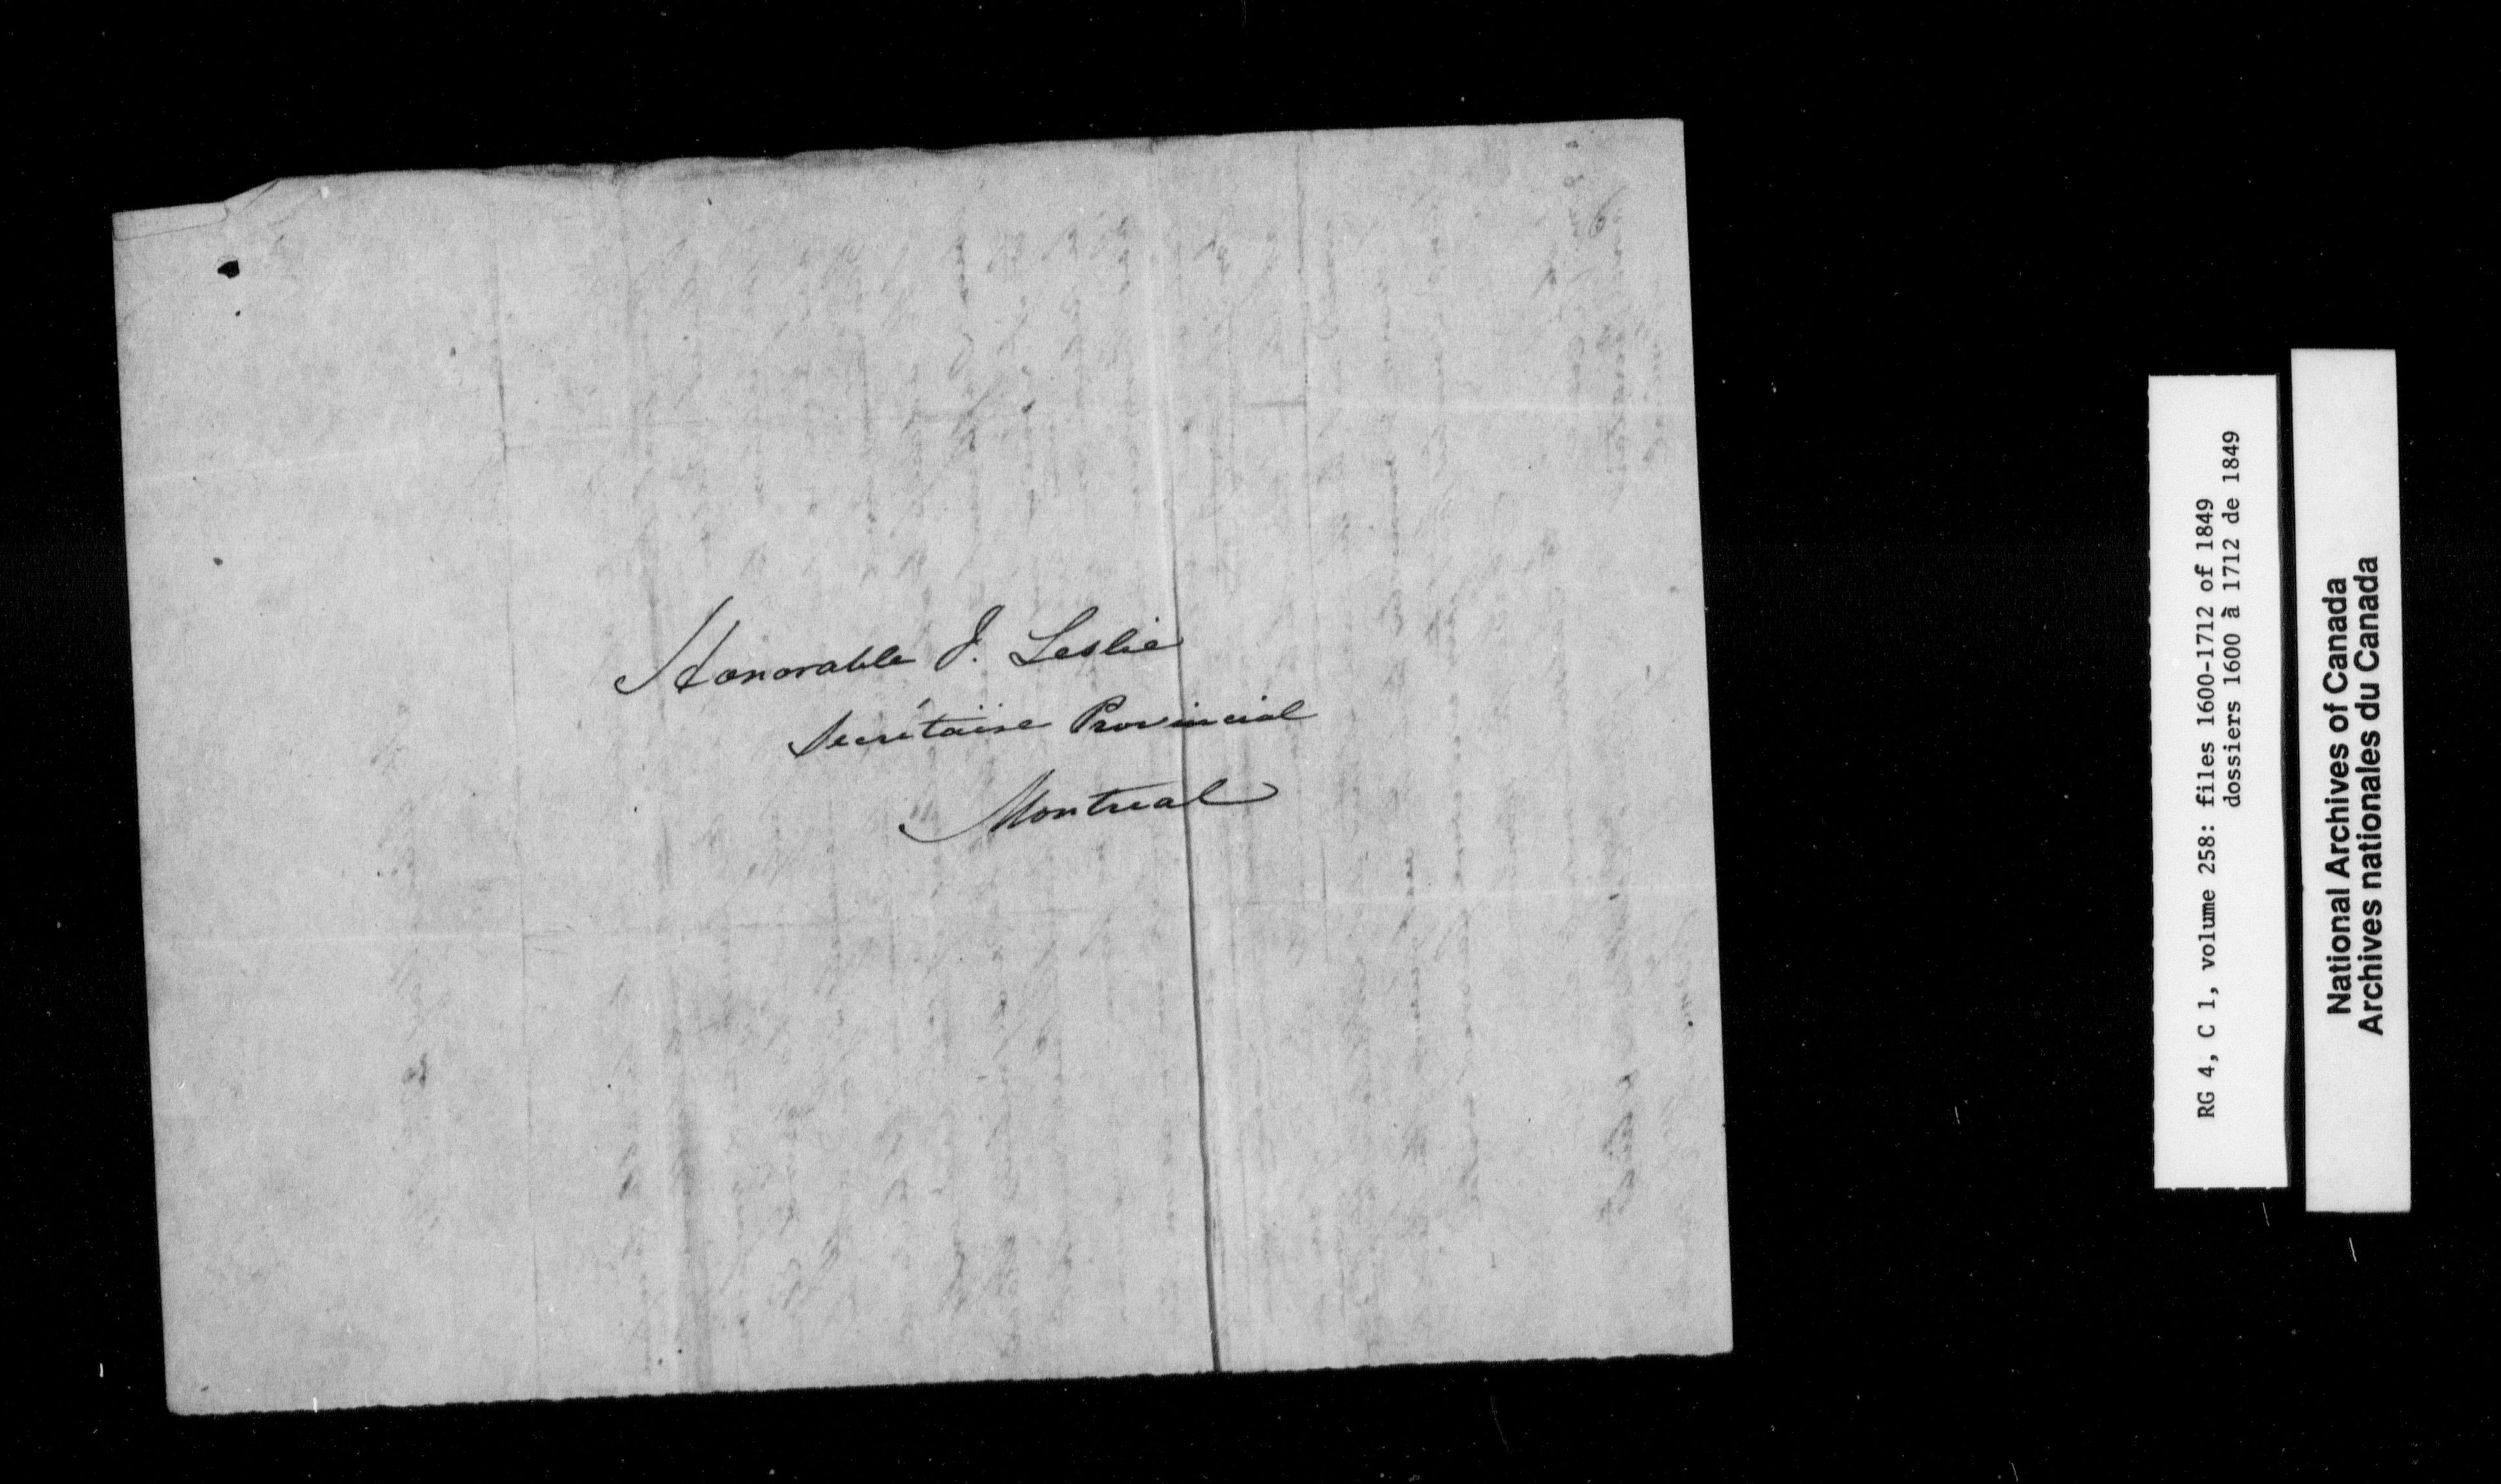 Honorable J. Leslie
Secrétaire Provincial
Montreal
RG 4, C 1, volume 258: files 1600-1712 of 1849
dossiers 1600 à 1712 de 1849
National Archives of Canada
Archives nationales du Canada